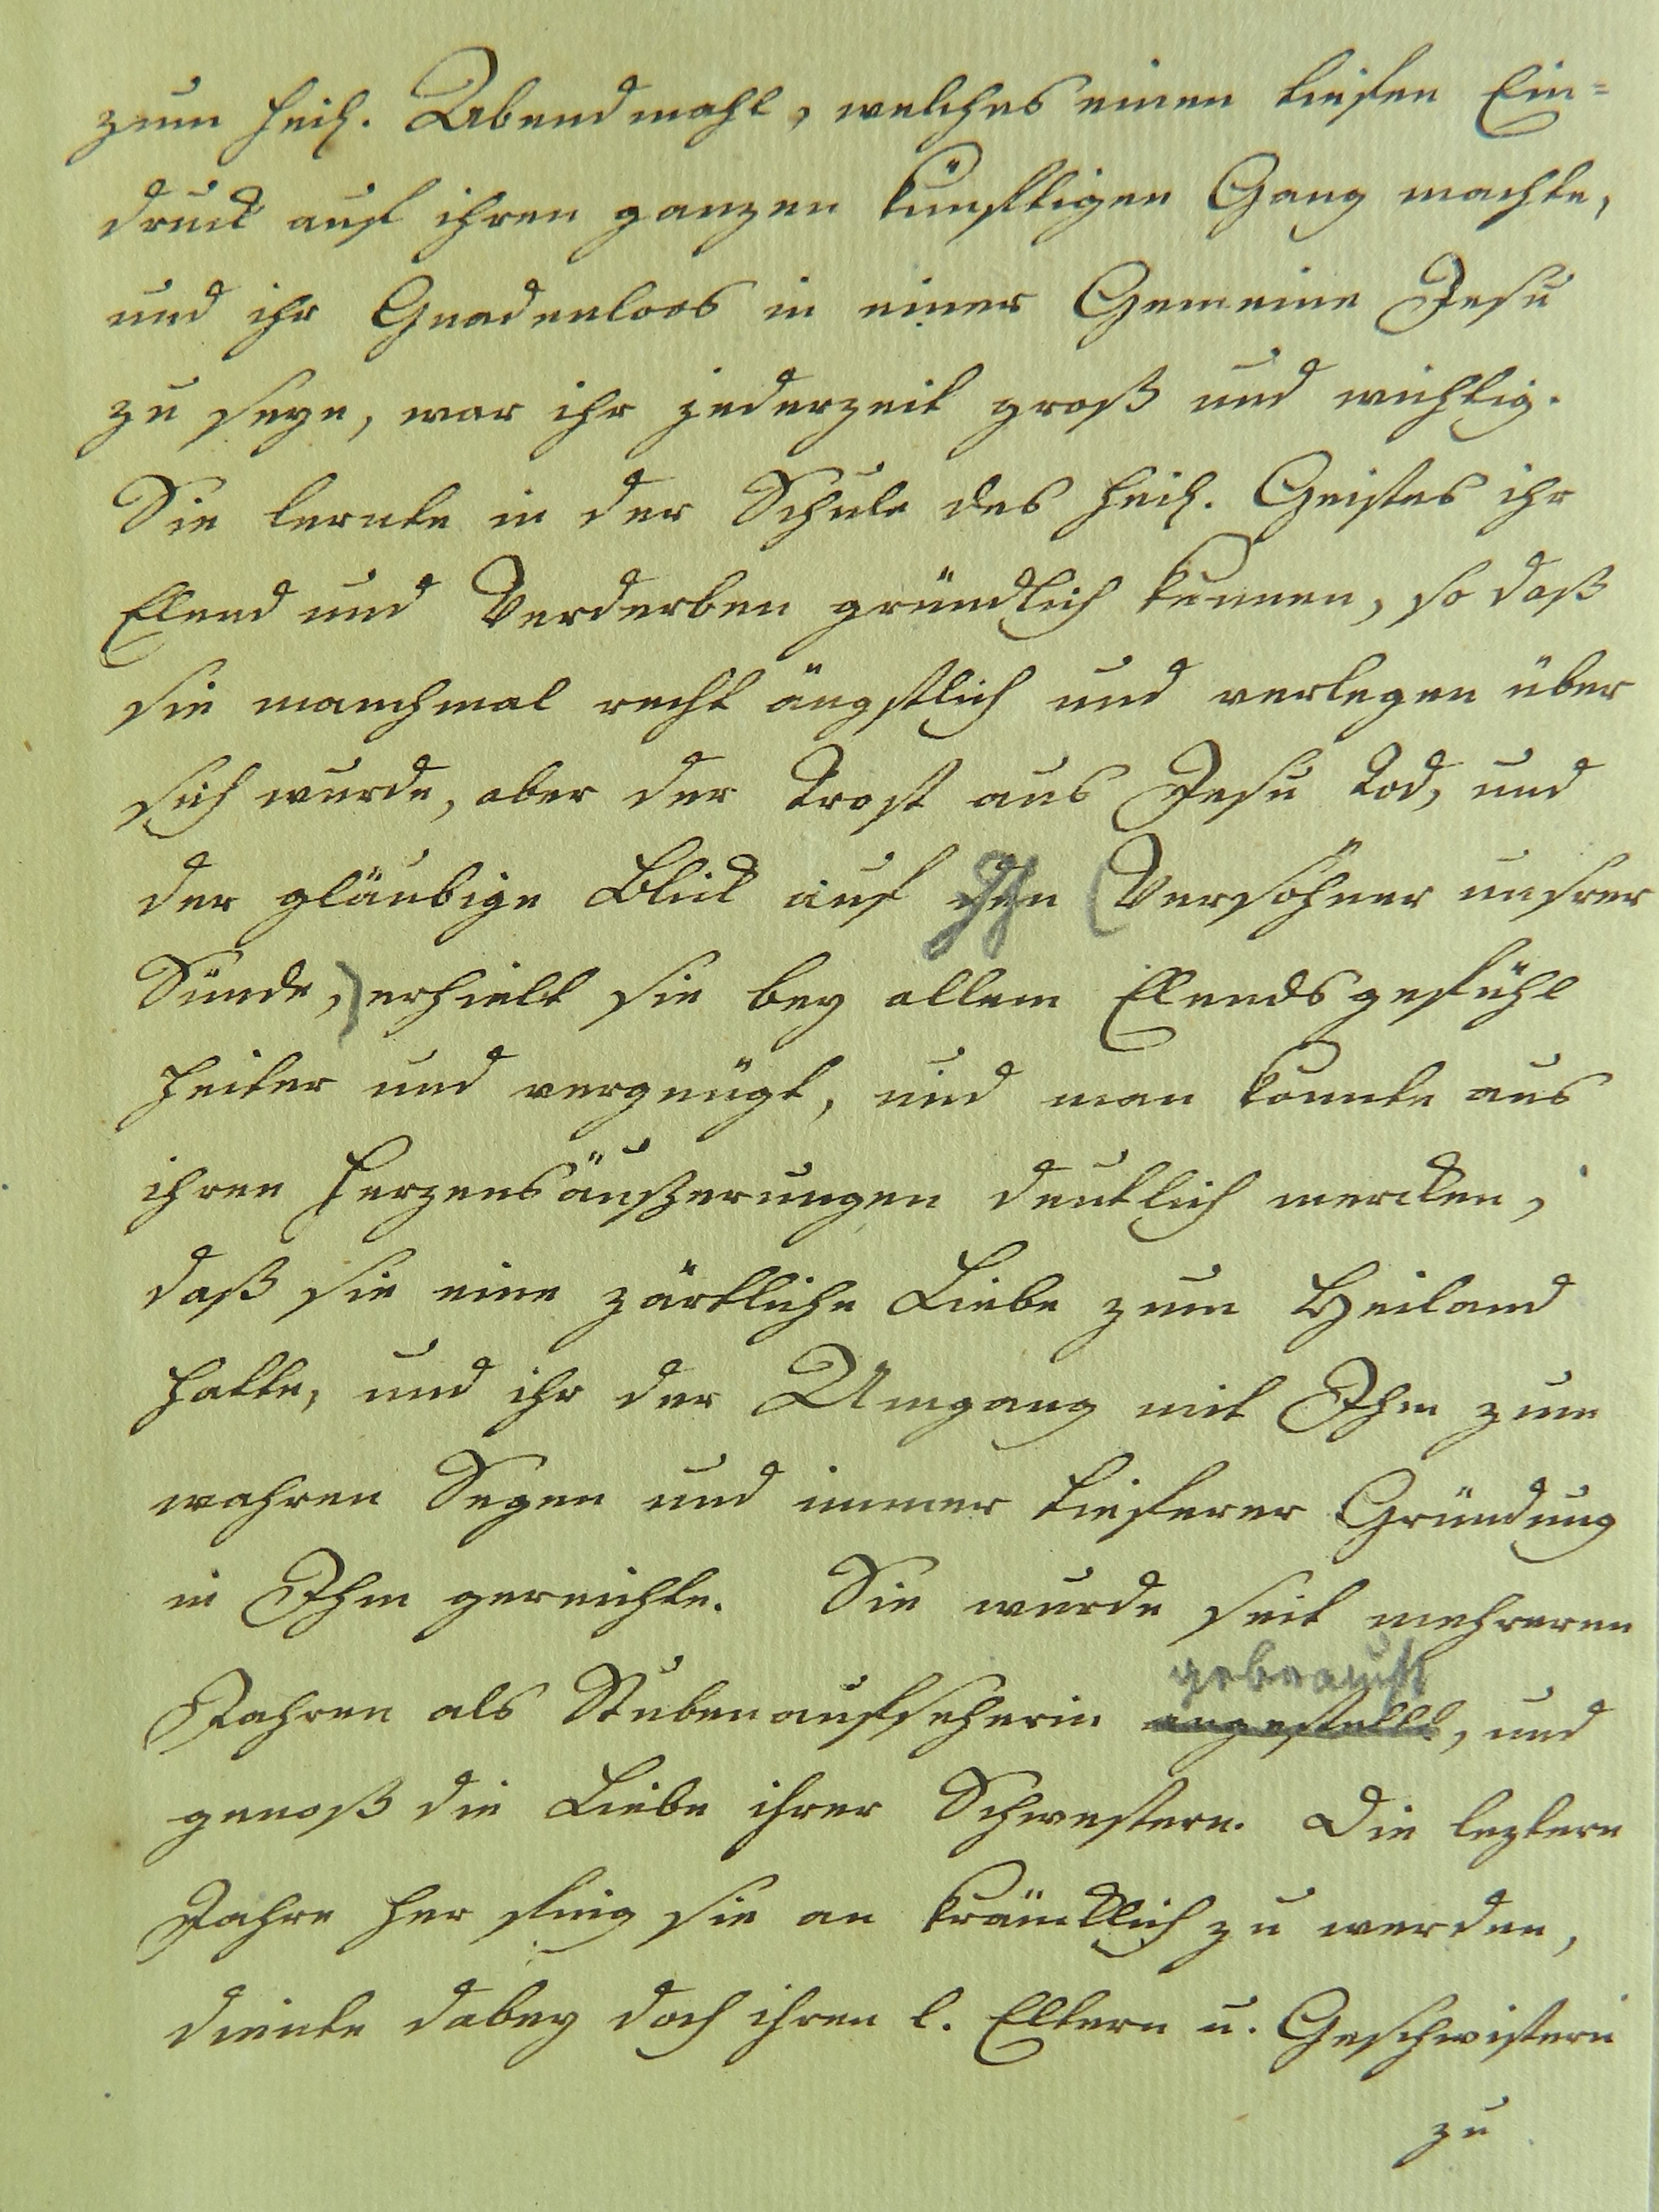 zum heil. Abendmahl, welches einen tiefen Ein-
druck auf ihren ganzen künftigen Gang machte,
und ihr Gnadenloos in einer Gemeine Jesu
zu seyn, war ihr jederzeit groß und wichtig.
Sie lernte in der Schule des heil. Geistes ihr
Elend und Verderben gründlich kennen, so daß
sie manchmal recht ängstlich und verlegen über
sich wurde, aber der Trost aus Jesu Tod, und
der gläubige Blick auf den Ihn (Versöhner unsrer
Sünde,) erhielt sie bey allem Elendsgefühl
heiter und vergnügt, und man konnte aus
ihren Herzensäußerungen deutlich mercken,
daß sie eine zärtliche Liebe zum Heiland
hatte, und ihr der Umgang mit Ihm zum
wahren Segen und immer tieferer Gründung
in Ihm gereichte. Sie wurde seit mehreren
gebraucht
Jahren als Stubenaufseherin angestellt, und
genoß die Liebe ihrer Schwestern. Die leztern
Jahre her fing sie an kräncklich zu werden,
diente dabey doch ihren l. Eltern u. Geschwistern
zu